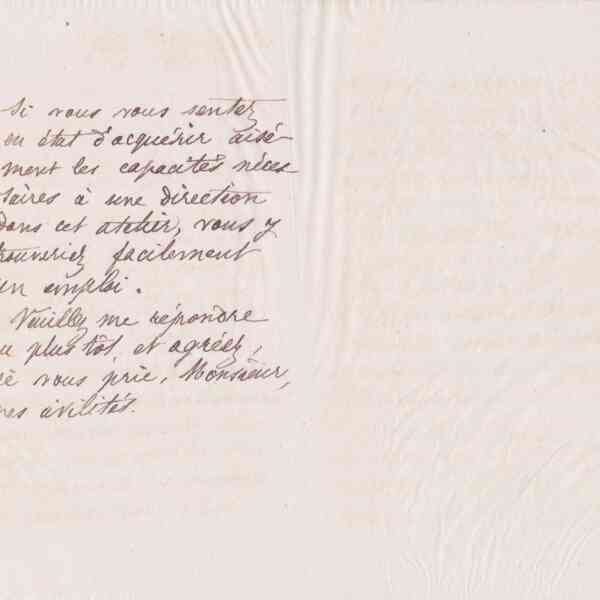 Si vous vous sentez
en état d'acquérir aisé-
ment les capacités néces
saires à une direction
dans cet atelier, vous y
trouveriez facilement
un emploi.
Veuillez me répondre
au plus tôt, et agréez,
je vous prie, Monsieur,
mes civilités.